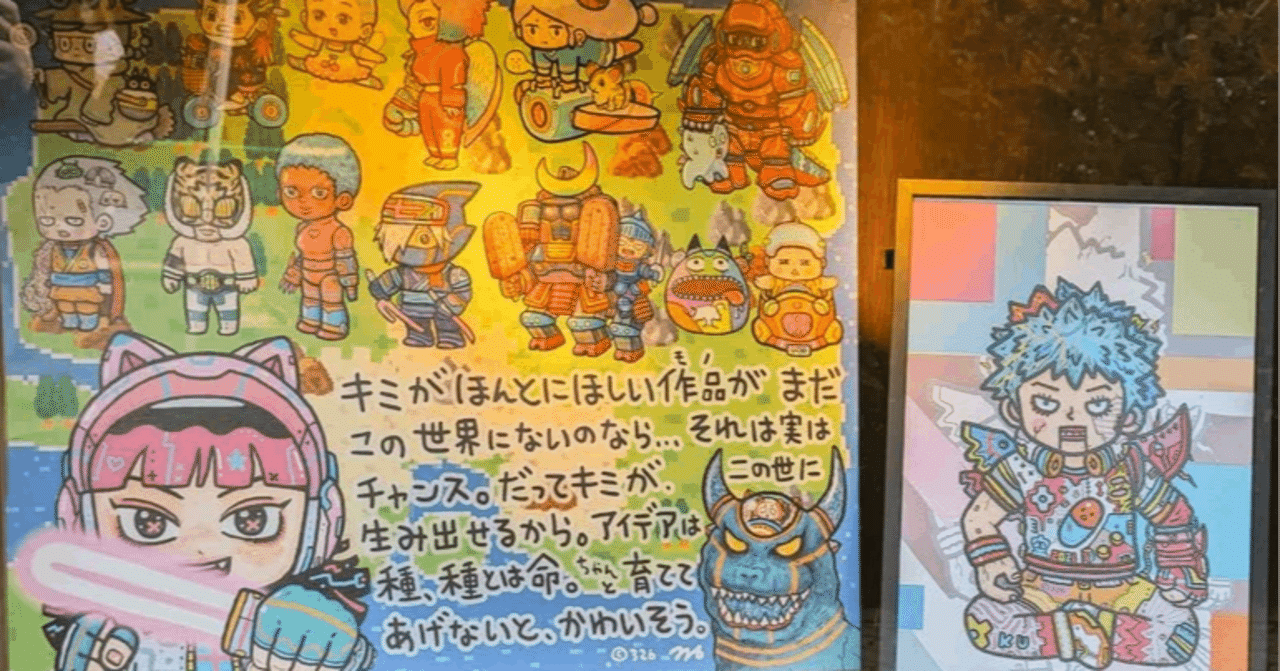 キミがほんとにほしい作品(モノ)がまだ
この世界にないのなら…それは実は
チャンス。だってキミが、この世に
生み出せるから。アイデアは
種、種とは命。ちゃんと育てて
あげないと、かわいそう。
©326
KU